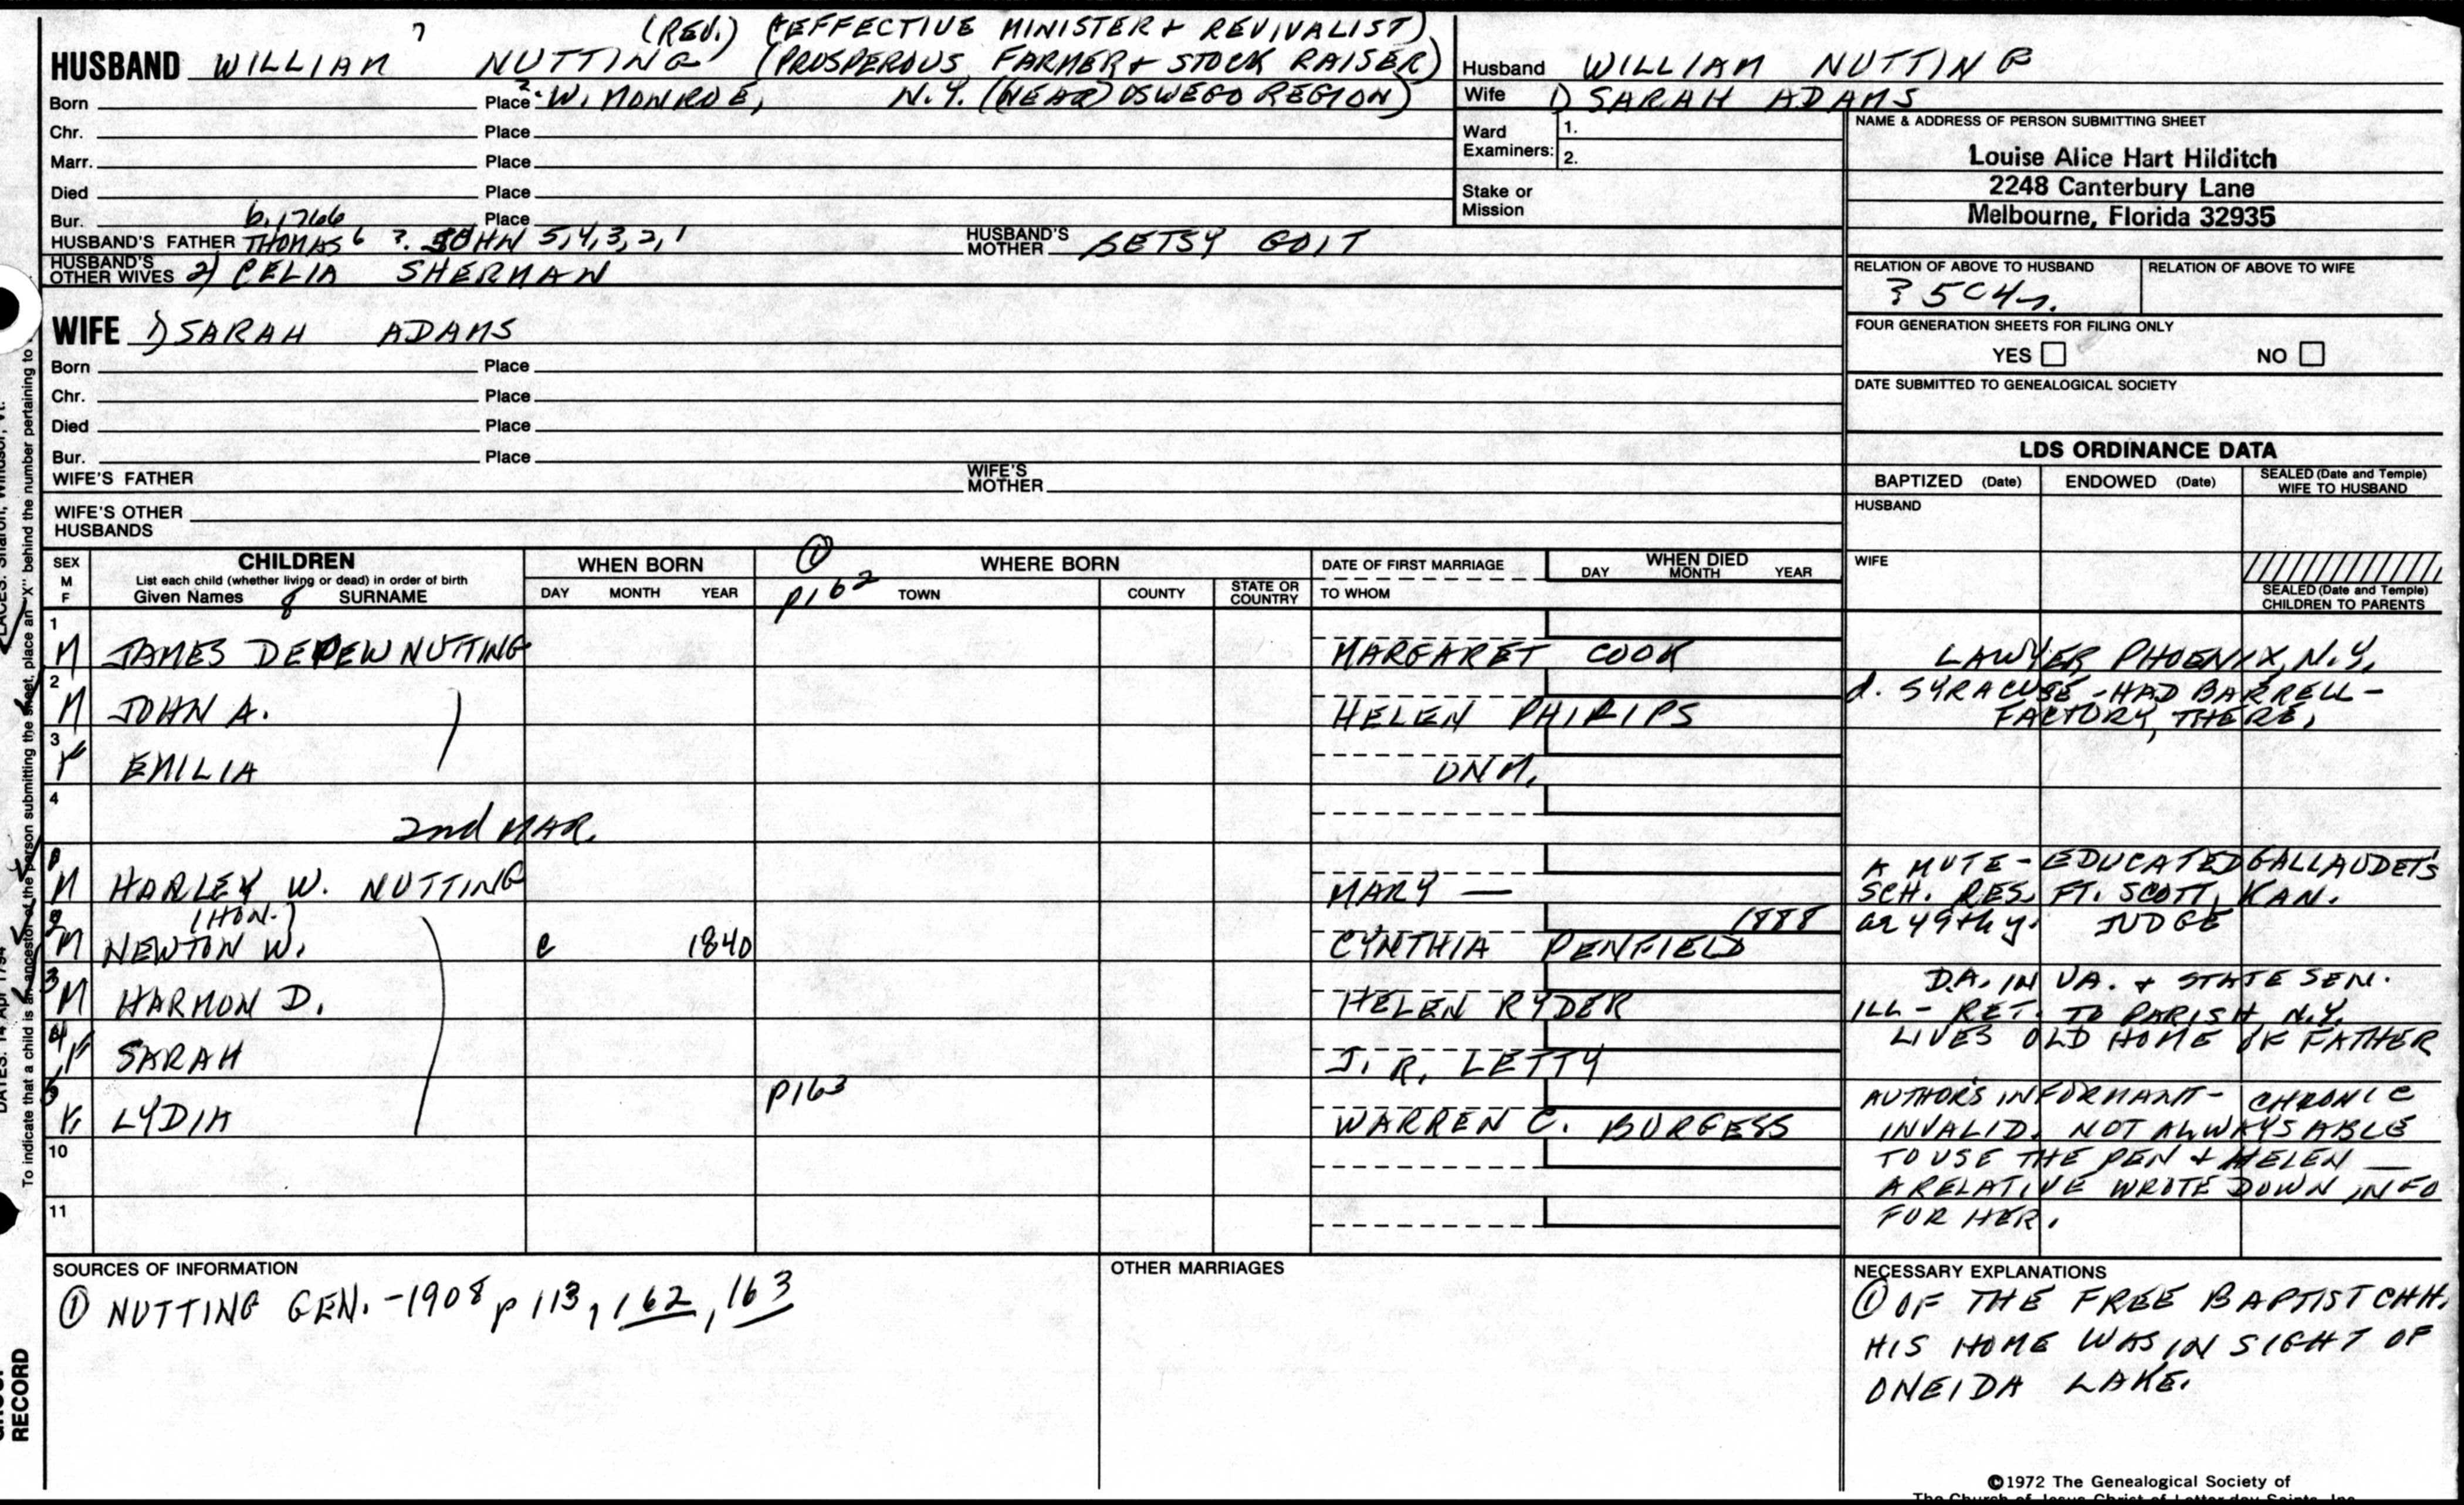 (REV.) (EFFECTIVE MINISTER + REVIVALIST)
HUSBAND WILLIAM ? NUTTING (PROSPEROUS FARMER + STOCK RAISER)
Born Place ?. W. MONROE, N.Y. (NEAR) OSWEGO REGION)
Chr. Place
Marr. Place
Died Place
Bur. Place
b. 1766
HUSBAND'S FATHER THOMAS 6 ?. JOHN 5,4,3,2,1 HUSBAND'S MOTHER BETSY GOIT
HUSBAND'S OTHER WIVES 2) CELIA SHERMAN
Husband WILLIAM NUTTING
Wife 1) SARAH ADAMS
Ward Examiners: 1.
2.
Stake or Mission
NAME & ADDRESS OF PERSON SUBMITTING SHEET
Louise Alice Hart Hilditch
2248 Canterbury Lane
Melbourne, Florida 32935
RELATION OF ABOVE TO HUSBAND RELATION OF ABOVE TO WIFE
? 5C4r.
FOUR GENERATION SHEETS FOR FILING ONLY
YES NO
DATE SUBMITTED TO GENEALOGICAL SOCIETY
WIFE 1) SARAH ADAMS
Born Place
Chr. Place
Died Place
Bur. Place
WIFE'S FATHER WIFE'S MOTHER
WIFE'S OTHER HUSBANDS
LDS ORDINANCE DATA
BAPTIZED (Date) ENDOWED (Date) SEALED (Date and Temple) WIFE TO HUSBAND
HUSBAND
WIFE
SEALED (Date and Temple) CHILDREN TO PARENTS
SEX M F
CHILDREN
List each child (whether living or dead) in order of birth
Given Names 8 SURNAME
WHEN BORN
DAY MONTH YEAR
① p162
WHERE BORN
TOWN COUNTY STATE OR COUNTRY
DATE OF FIRST MARRIAGE
TO WHOM
WHEN DIED
DAY MONTH YEAR
1 M JAMES DEPEW NUTTING MARGARET COOK LAWYER PHOENIX, N.Y.
2 M JOHN A. HELEN PHIRIPS d. SYRACUSE - HAD BARRELL - FACTORY, THERE,
3 F EMILIA UNM.
4
2nd MAR.
M HARLEY W. NUTTING MARY — A MUTE - EDUCATED GALLAUDETS SCH. RES. FT. SCOTT, KAN.
(HON.)
2 M NEWTON W. c 1840 CYNTHIA PENFIELD 1888 ae 49th y. JUDGE
3 M HARMON D. HELEN RYDER D.A. IN VA. + STATE SEN.
ILL - RET. TO PARISH N.Y.
LIVES OLD HOME OF FATHER
4 F SARAH J. R. LETTY
5 F LYDIA p163 WARREN C. BURGESS AUTHOR'S INFORMANT - CHRONIC
INVALID. NOT ALWAYS ABLE
TO USE THE PEN + HELEN —
A RELATIVE WROTE DOWN INFO
FOR HER.
10
11
SOURCES OF INFORMATION
① NUTTING GEN. - 1908 p 113, 162, 163
OTHER MARRIAGES
NECESSARY EXPLANATIONS
① OF THE FREE BAPTIST CHH.
HIS HOME WAS IN SIGHT OF
ONEIDA LAKE.
©1972 The Genealogical Society of
The Church of Jesus Christ of Latter-day Saints, Inc.
To indicate that a child is an ancestor of the person submitting the sheet, place an "X" behind the number pertaining to
RECORD